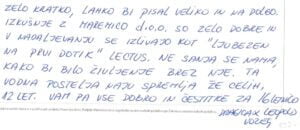 ZELO KRATKO, LAHKO BI PISAL VELIKO IN NA DOLGO.
IZKUŠNJE Z MAREMICO d.o.o. SO ZELO DOBRE IN
V NADALJEVANJU SE IZLIVAJO KOT "LJUBEZEN
NA PRVI DOTIK" LECTUS. NE SANJA SE NAMA,
KAKO BI BILO ŽIVLJENJE BREZ NJE. TA
VODNA POSTELJA NAJU SPREMLJA ŽE CELIH
12 LET. VAM PA VSE DOBRO IN ČESTITKE ZA 16 LETNICO